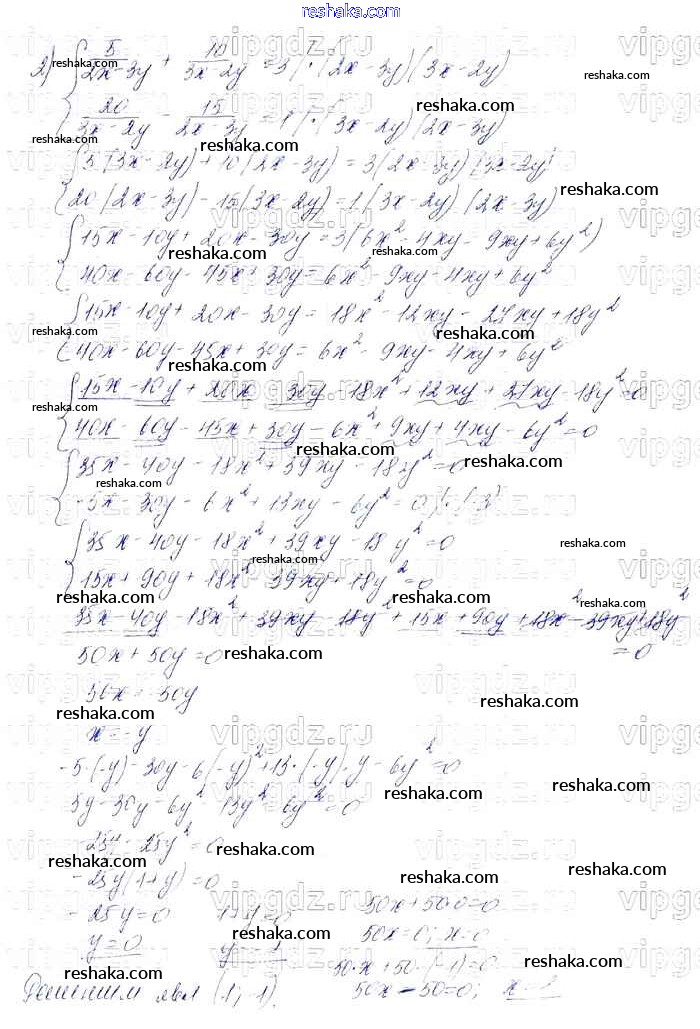 reshaka.com
2) { 5/(2x-3y) + 10/(3x-2y) = 3 | · (2x-3y)(3x-2y)
20/(3x-2y) - 15/(2x-3y) = 1 | · (3x-2y)(2x-3y)
{ 5(3x-2y) + 10(2x-3y) = 3(2x-3y)(3x-2y)
20(2x-3y) - 15(3x-2y) = 1(3x-2y)(2x-3y)
{ 15x - 10y + 20x - 30y = 3(6x² - 4xy - 9xy + 6y²)
40x - 60y - 45x + 30y = 6x² - 9xy - 4xy + 6y²
{ 15x - 10y + 20x - 30y = 18x² - 12xy - 27xy + 18y²
40x - 60y - 45x + 30y = 6x² - 9xy - 4xy + 6y²
{ 15x - 10y + 20x - 30y - 18x² + 12xy + 27xy - 18y² = 0
40x - 60y - 45x + 30y - 6x² + 9xy + 4xy - 6y² = 0
{ 35x - 40y - 18x² + 39xy - 18y² = 0
-5x - 30y - 6x² + 13xy - 6y² = 0 | · (-3)
{ 35x - 40y - 18x² + 39xy - 18y² = 0
15x + 90y + 18x² - 39xy + 18y² = 0
35x - 40y - 18x² + 39xy - 18y² + 15x + 90y + 18x² - 39xy + 18y² = 0
50x + 50y = 0
50x = -50y
x = -y
-5·(-y) - 30y - 6(-y)² + 13·(-y)·y - 6y² = 0
5y - 30y - 6y² - 13y² - 6y² = 0
-25y - 25y² = 0
-25y(1+y) = 0
-25y = 0 1+y = 0 50x + 50·0 = 0
y = 0 y = -1 50x = 0; x = 0
50·x + 50·(-1) = 0
Решением явл (1; -1). 50x - 50 = 0; x = 1